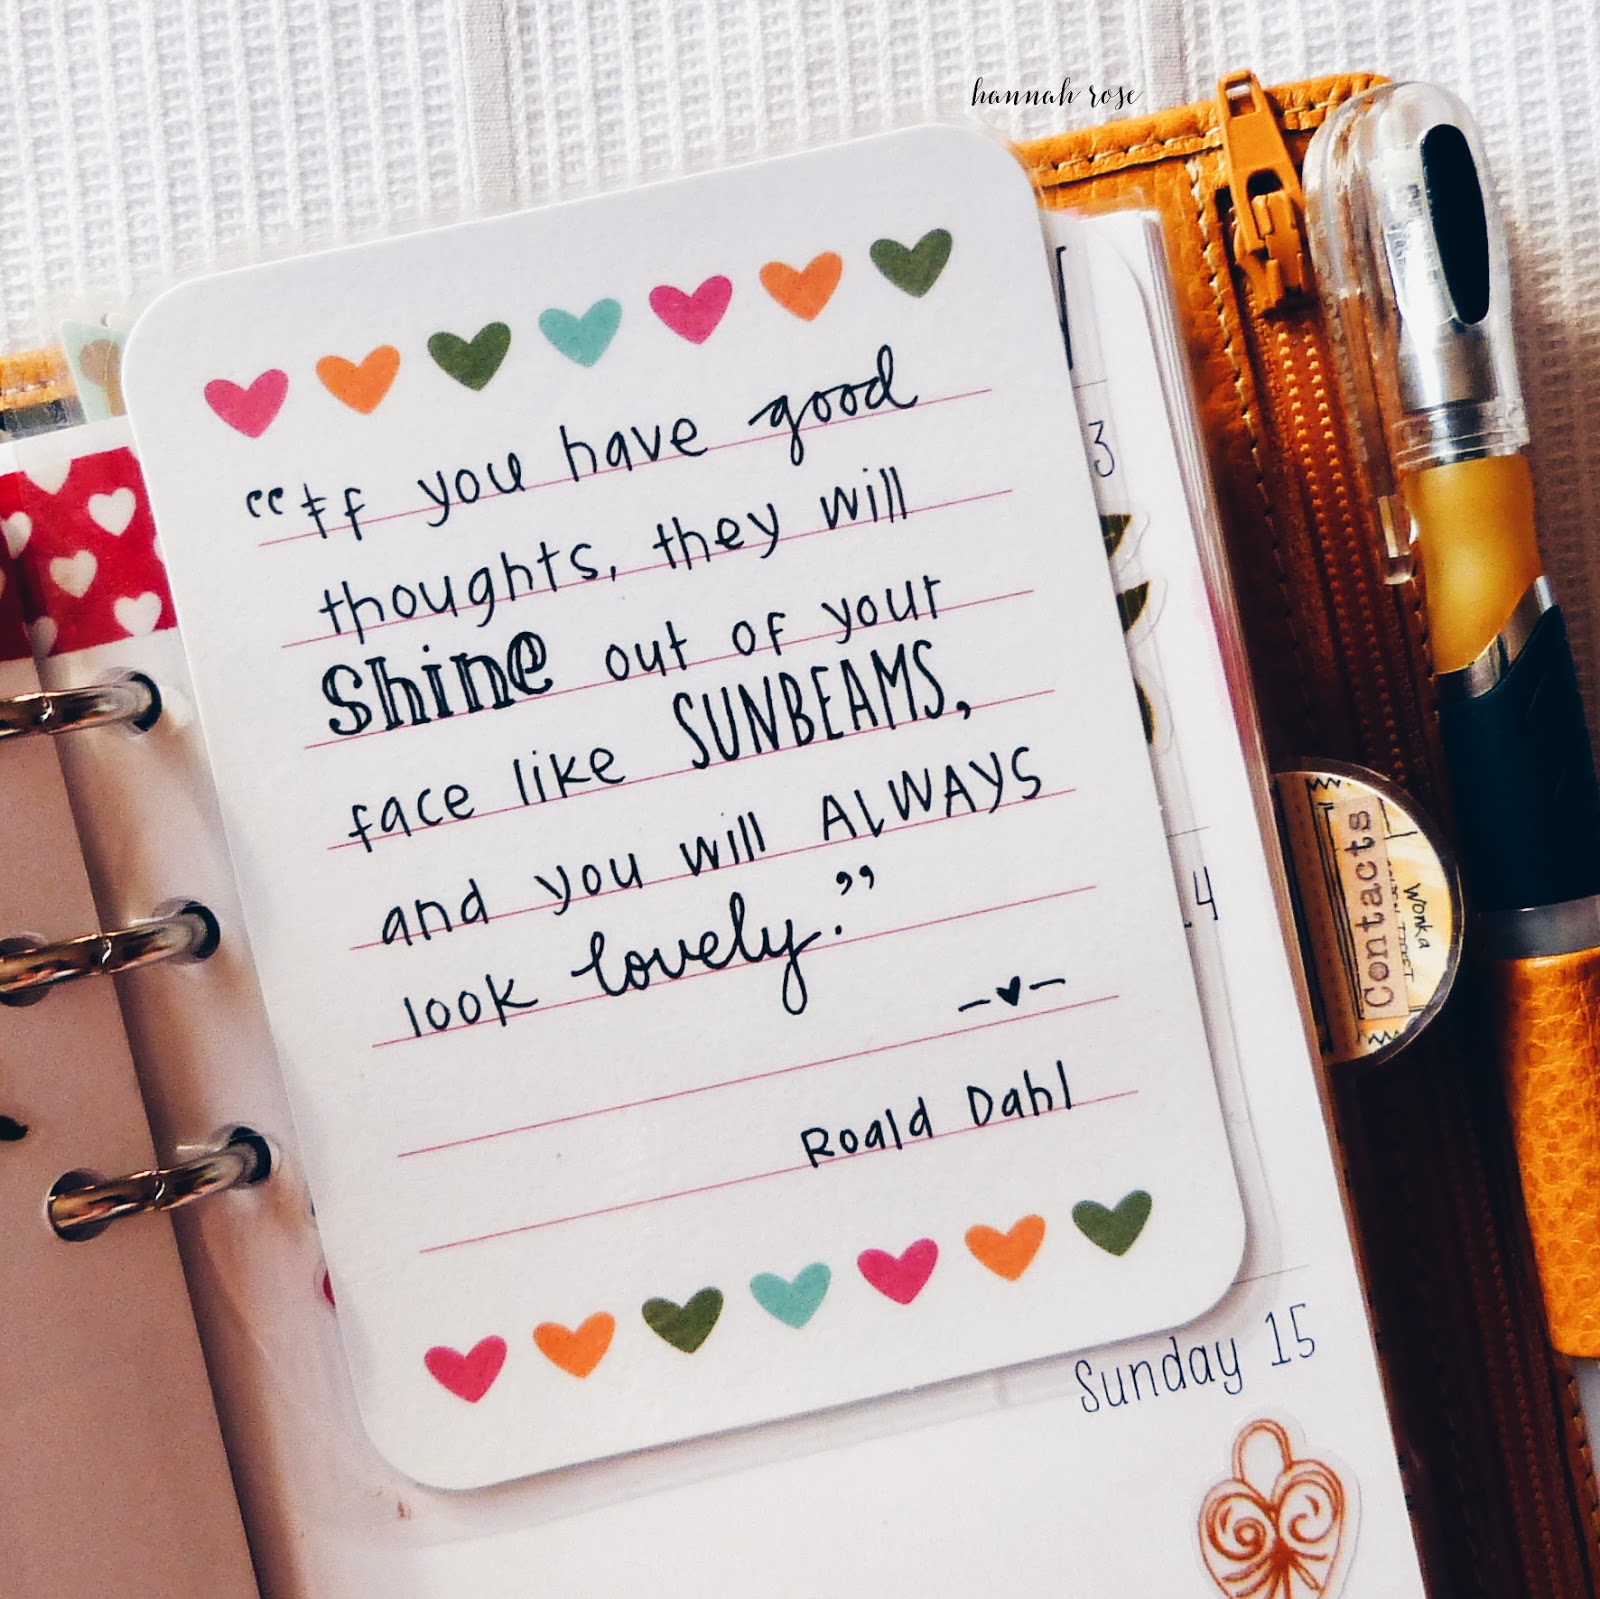 hannah rose
“If you have good
thoughts, they will
shine out of your
face like SUNBEAMS,
and you will ALWAYS
look lovely.”
Roald Dahl
3
4
Contacts
Wonka
Sunday 15